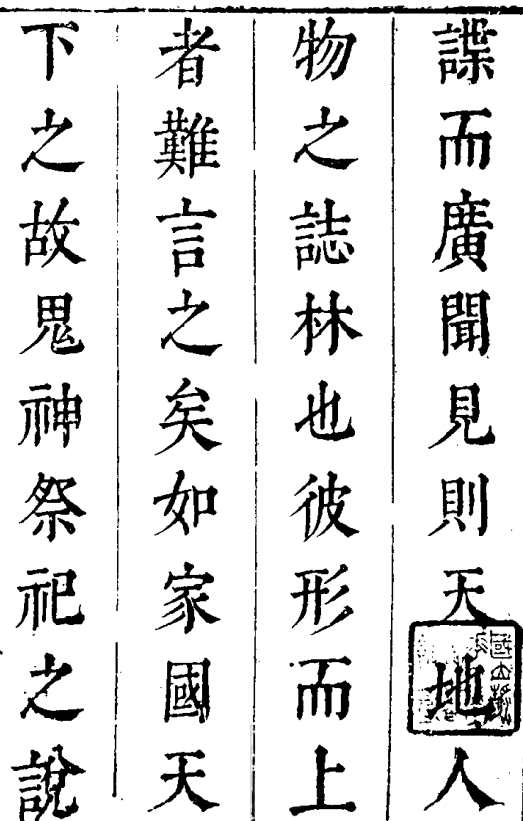 諜而廣聞見則天地人
物之誌林也彼形而上
者難言之矣如家國天
下之故鬼神祭祀之說